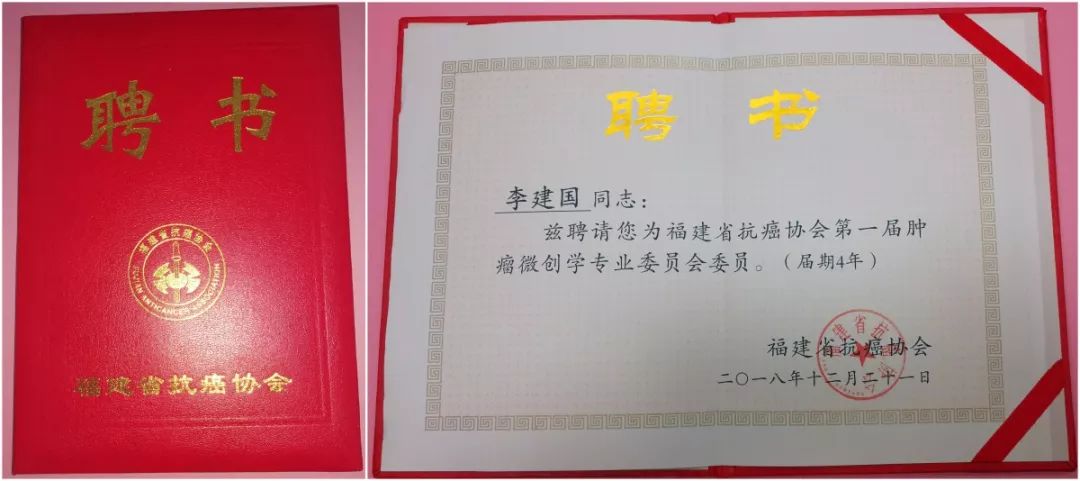 聘 书
福建省抗癌协会
FUJIAN ANTICANCER ASSOCIATION
福建省抗癌协会
聘 书
李建国 同志：
兹聘请您为福建省抗癌协会第一届肿
瘤微创学专业委员会委员。（届期4年）
福建省抗癌协会
二〇一八年十二月二十一日